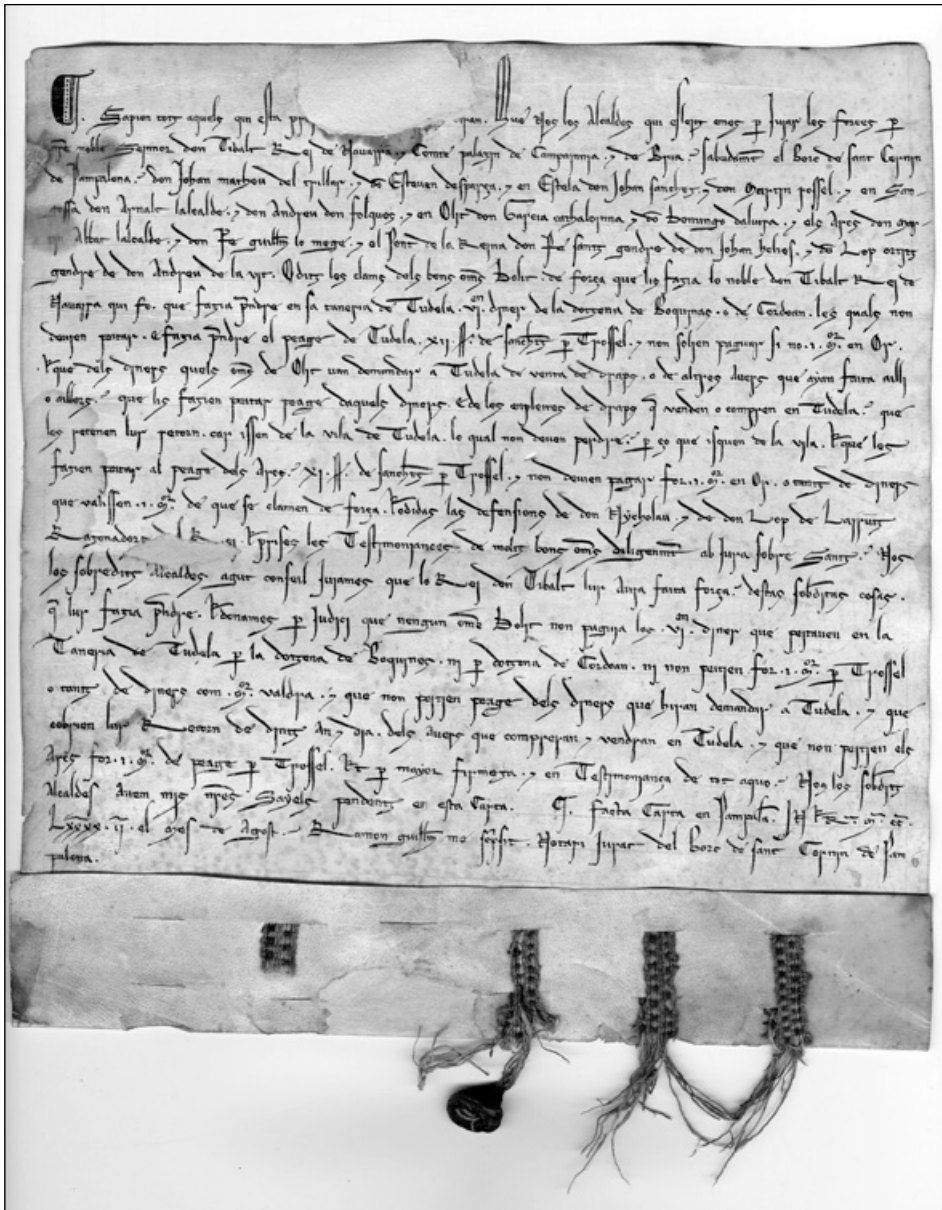 . Sapien totz aquels qui esta pre ran. Que Nos los Alcaldes qui esleitz emes per jurar les forces per
noble Seinnor don Tibalt Rei de Navarra, y Comte palazin de Campainnia, y de Bria. sabudament el Borc de sant Cernin
de Pampalona. don Johan matheu del trullar, y don Esteven desparza, y en Estela don Johan sanchez, y don Martin possel, y en San-
nossa, don Arnalt lalcalde, y don Andreu don folques, y en Olit don Garcia cathaloinna, y don Domingo daluira, y els Arcs don
Abbat lalcalde, y don Pe guillm lo mege, y el Pont de la Reyna don Pe santz gendre de don Johan helies, y don Lop ortitz
gendre de don Andreu de la vit. Oditz les clams dels bons omes Dolit, de força que lis fazia lo noble don Tibalt Rei de
Navarra qui fo. que fazia prendre en sa taneria de Tudela .vi. diner de la dotzena de Boquinas, o de Cordoan, les quals non
devien peitar. E fazia prendre el peage de Tudela .xii. ss. de sanchetz per Trossel, y non solien paguar si no .i. mr. en Or.
que dels diners quels omes de Olit van demandar a Tudela de venta de draps, o de altres Avers que ayan faitaailli
o aillors. que lis fazien peitar peage daquels diners. E de los empleites de draps que venden o compren en Tudela. que
les retenen lur retorn, car issen de la vila de Tudela. lo qual non deven perdre. per ço que isquen de la vila. que les
fazien peitar al peage dels Arcs .xi. ss. de sanchetz per Trossel, y non deuien pagar for .i. mr. en Or. o tantz de diners
que valissen .i. mr. de que se clamen de força. Et odidas las defensions de don Nycholau, y de don Lop de
Razonadors Rei. Et preses les Testimoniances de moltz bons omes diligenment ab jura sobre Santz. Nos
los sobreditz Alcaldes agut conseil jurames que lo Rei don Tibalt lur avia faita força. destas sobreditas cosas.
que lur fazia prendre. Et donames per judici que nengun ome Dolit non pagaia los .vi. diner que peitaven en la
Taneria de Tudela per la dotzena de Boquines, ni per dotzena de Cordoan. ni non peiten for .i. mr. per Trossel
o tantz de diners com .mr. valdra. y que non peiten peage dels diners que hiran demandar a Tudela. y que
cobrien lur Retorn de dintz An y dia. dels Avers que compreran y vendran en Tudela. y que non peiten els
Arcs for .i. mr. de peage per Trossel. Et per mayor firmeza, y en Testimoniança de tot aquo. Nos los sobreditz
Alcaldes Avem mis nres Sayels pendentz en esta Carta. Facta Carta en Pampilona. ERA M. CC.
LXXXX. II. el mes de Agost. Ramon guillm mo scripsit. Notari Jurat del borc de sant Cernin de Pam-
palona.